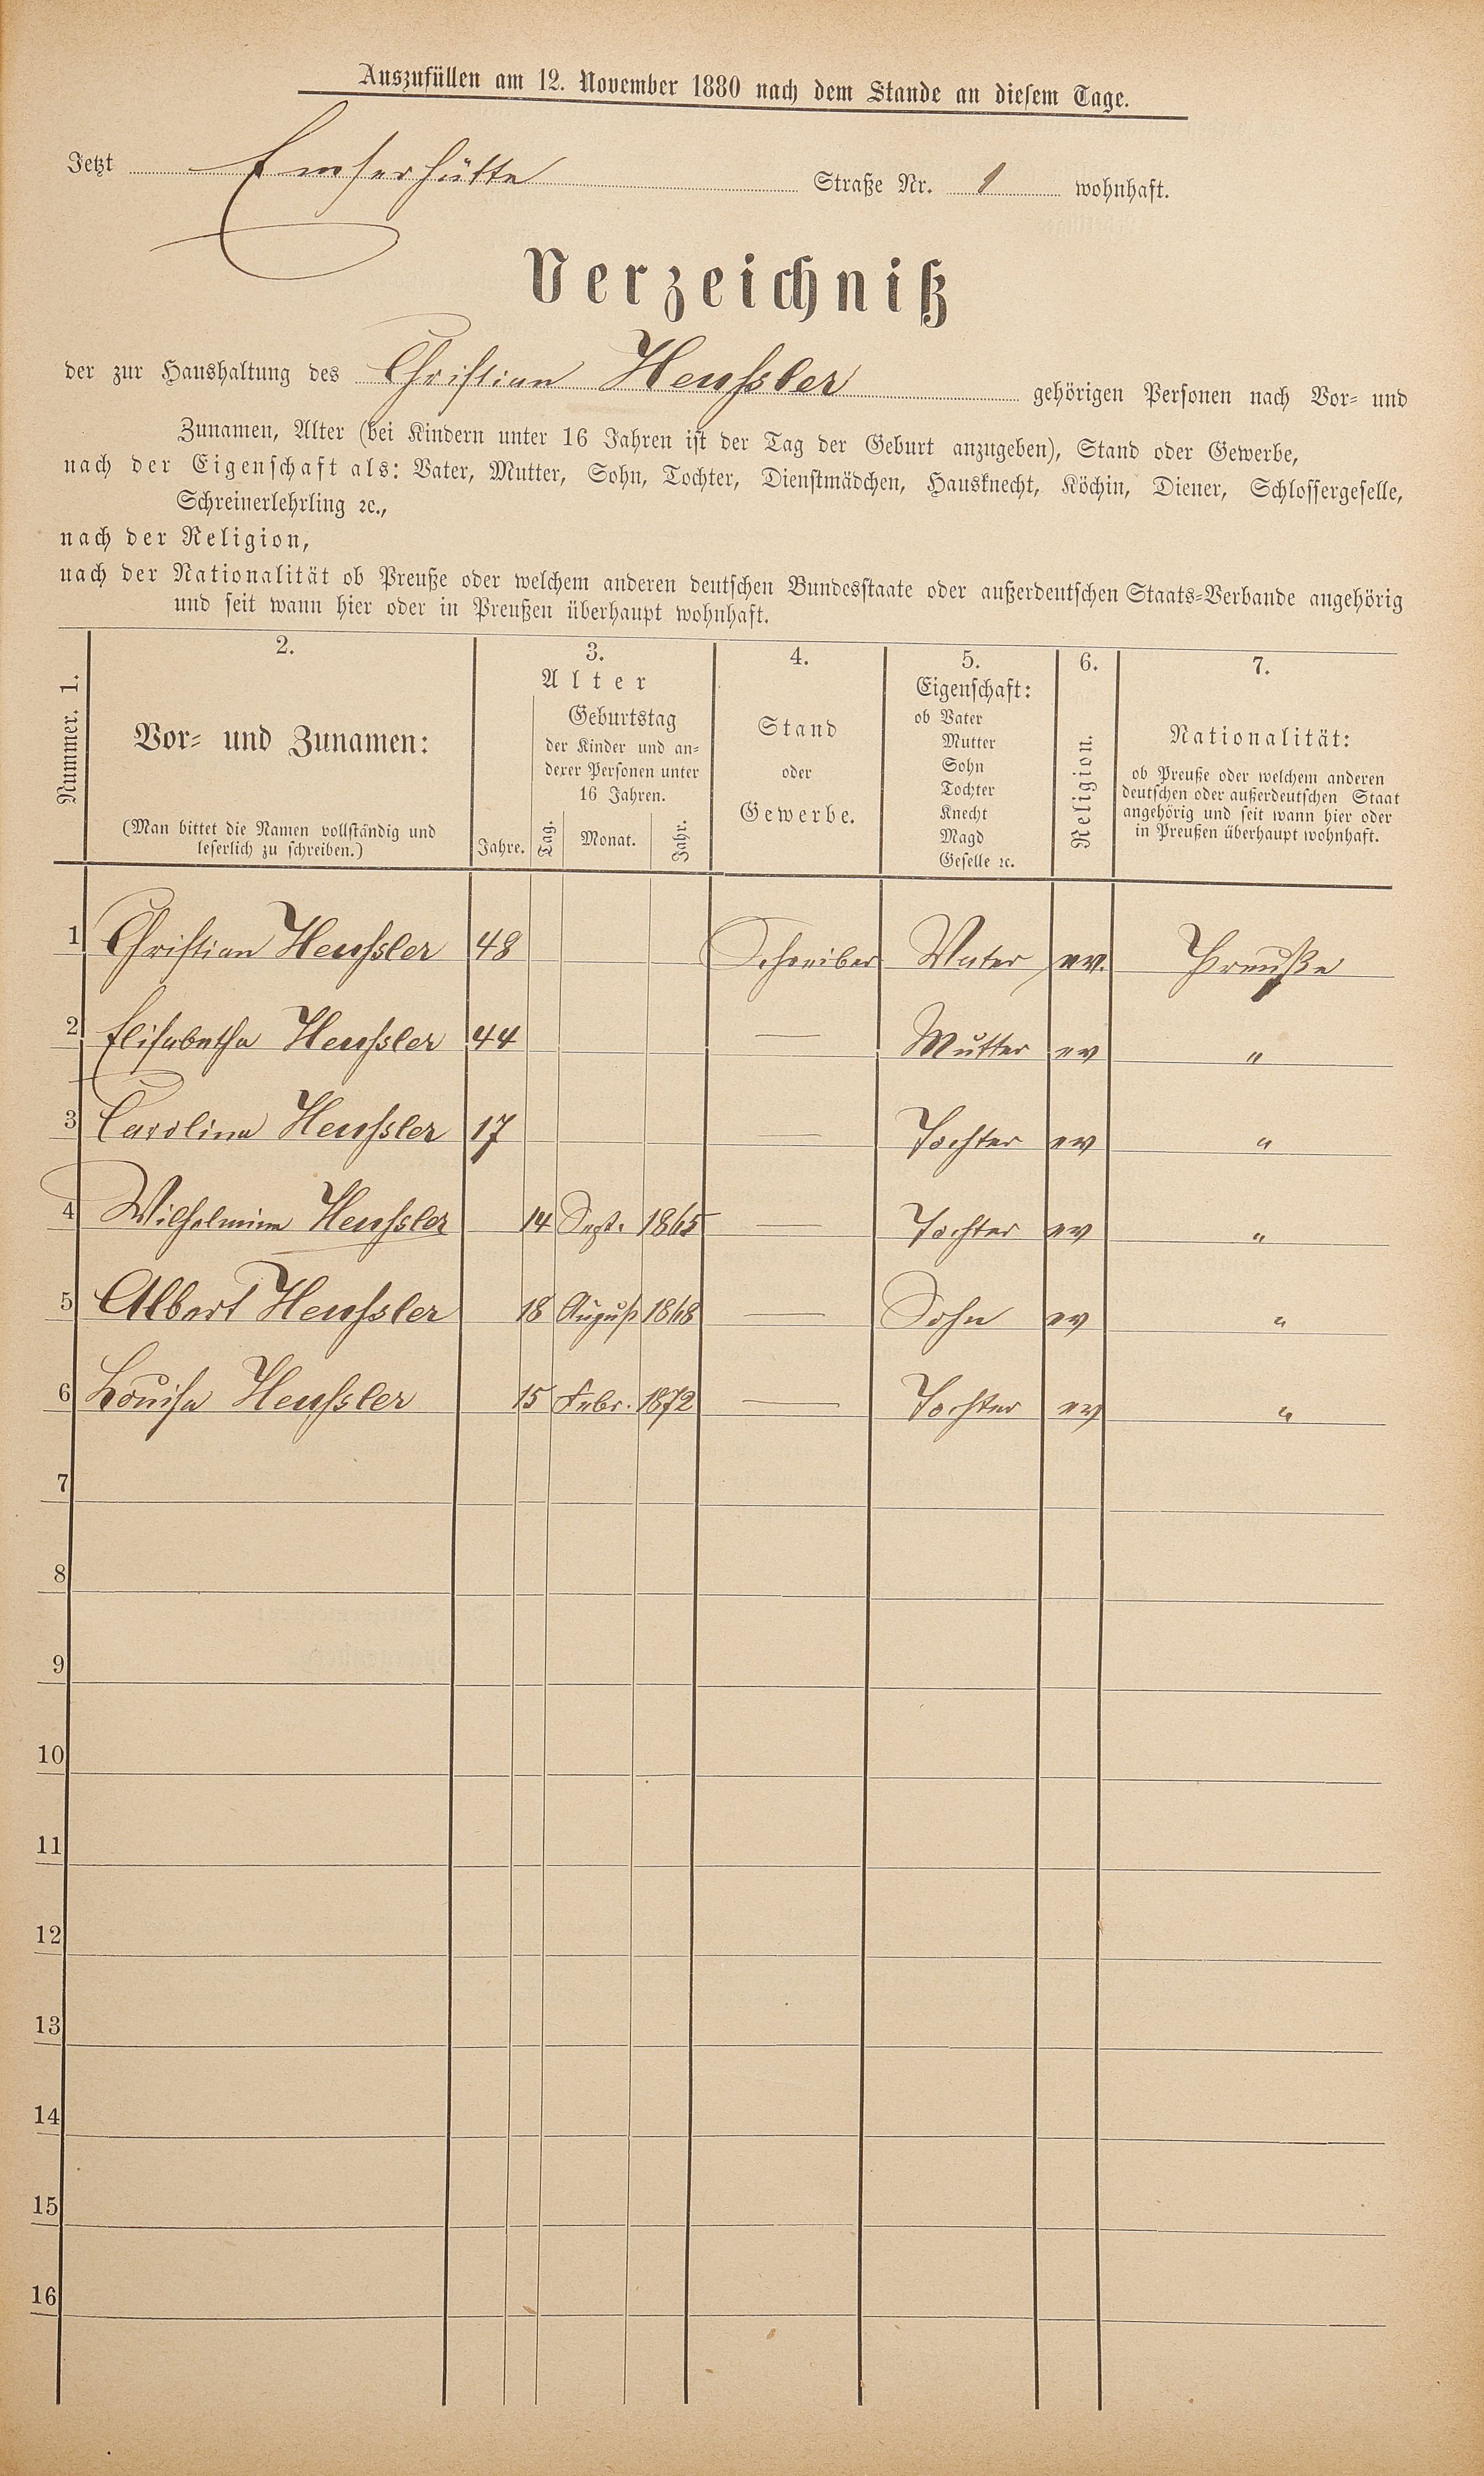 Auszufüllen am 12. November 1880 nach dem Stande an diesem Tage.
Jetzt Emserhütte Straße Nr. 1 wohnhaft.
Verzeichniß
der zur Haushaltung des Christian Heußler gehörigen Personen nach Vor- und
Zunamen, Alter (bei Kindern unter 16 Jahren ist der Tag der Geburt anzugeben), Stand oder Gewerbe,
nach der Eigenschaft als: Vater, Mutter, Sohn, Tochter, Dienstmädchen, Hausknecht, Köchin, Diener, Schlossergeselle,
Schreinerlehrling ꝛc.,
nach der Religion,
nach der Nationalität ob Preuße oder welchem anderen deutschen Bundesstaate oder außerdeutschen Staats-Verbande angehörig
und seit wann hier oder in Preußen überhaupt wohnhaft.
Nummer. 1.
2.
Vor- und Zunamen:
(Man bittet die Namen vollständig und
leserlich zu schreiben.)
3.
Alter
Jahre.
Geburtstag
der Kinder und an-
derer Personen unter
16 Jahren.
Tag. Monat. Jahr.
4.
Stand
oder
Gewerbe.
5.
Eigenschaft:
ob Vater
Mutter
Sohn
Tochter
Knecht
Magd
Geselle ꝛc.
6.
Religion.
7.
Nationalität:
ob Preuße oder welchem anderen
deutschen oder außerdeutschen Staat
angehörig und seit wann hier oder
in Preußen überhaupt wohnhaft.
1 Christian Heußler 48 Schreiber Vater ev. Preuße
2 Elisabetha Heußler 44 — Mutter ev "
3 Carolina Heußler 17 — Tochter ev "
4 Wilhelmina Heußler 14 Sept. 1865 — Tochter ev "
5 Albert Heußler 18 August 1868 — Sohn ev "
6 Louisa Heußler 15 Febr. 1872 — Tochter ev "
7
8
9
10
11
12
13
14
15
16